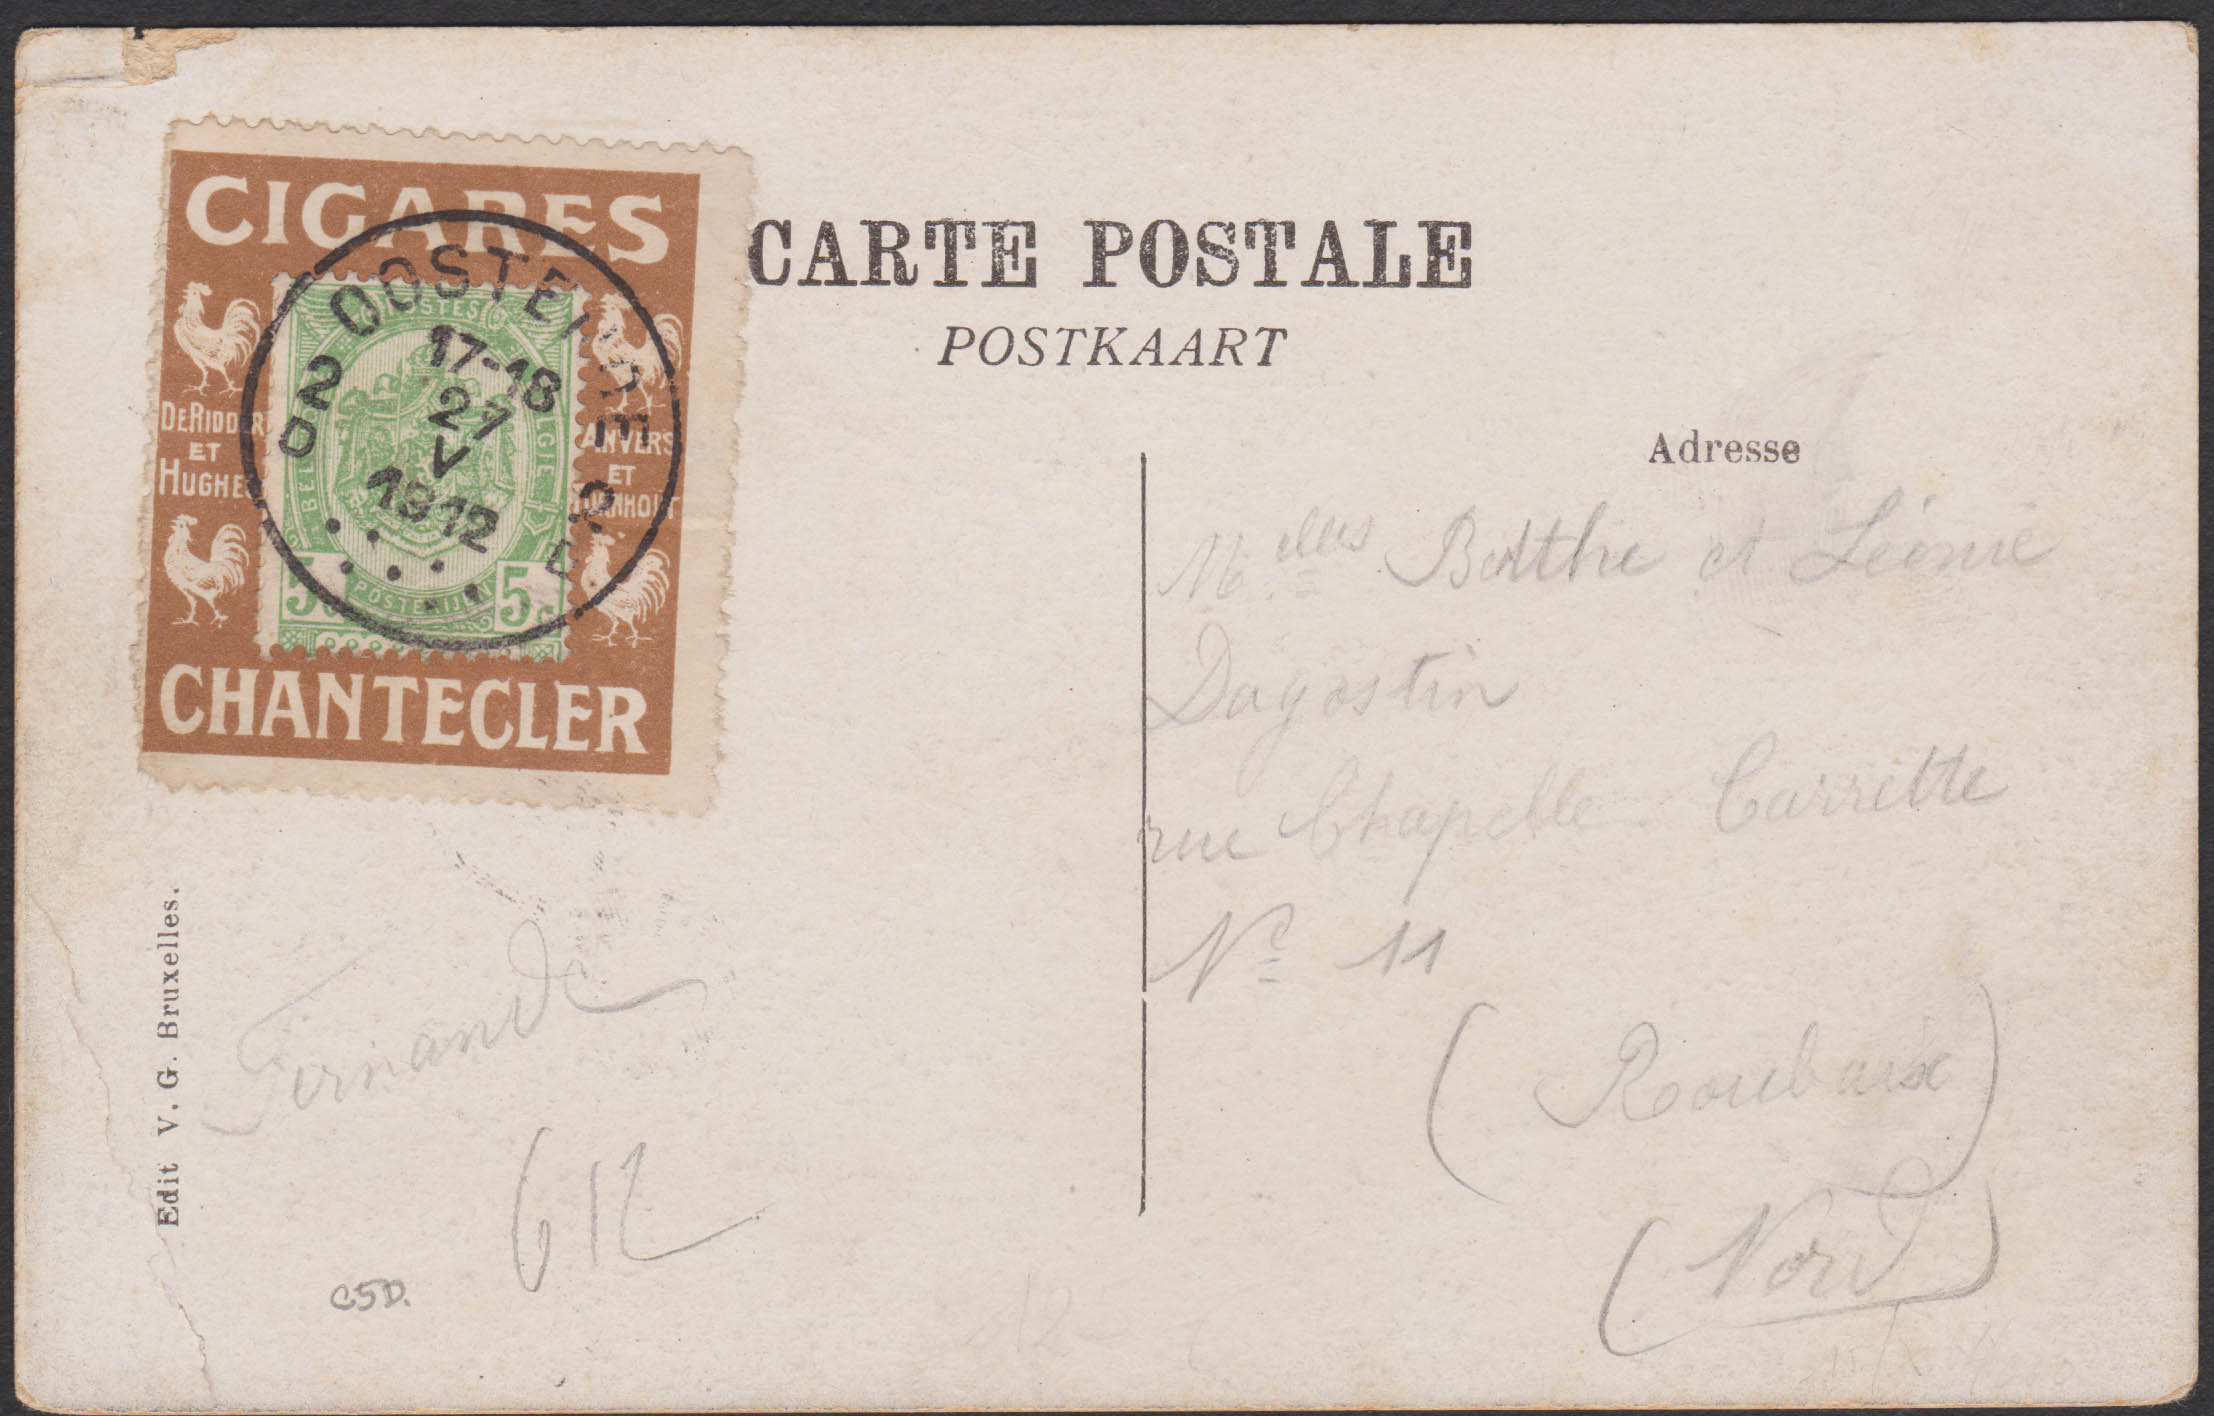 CIGARES
DERIDDER
ET
HUGHE
ANVERS
ET
TURNHOUT
CHANTECLER
POSTES
BELGIE
POSTERIJEN
5c 5c
OOSTENDE
2D
17-18
27
V
1912
2E
CARTE POSTALE
POSTKAART
Adresse
Melles Berthe et Léonie
Dagostin
rue Chapelle Carrette
No 11
(Roubaix)
(Nord)
Fernande
612
C5D.
12
Edit V. G. Bruxelles.